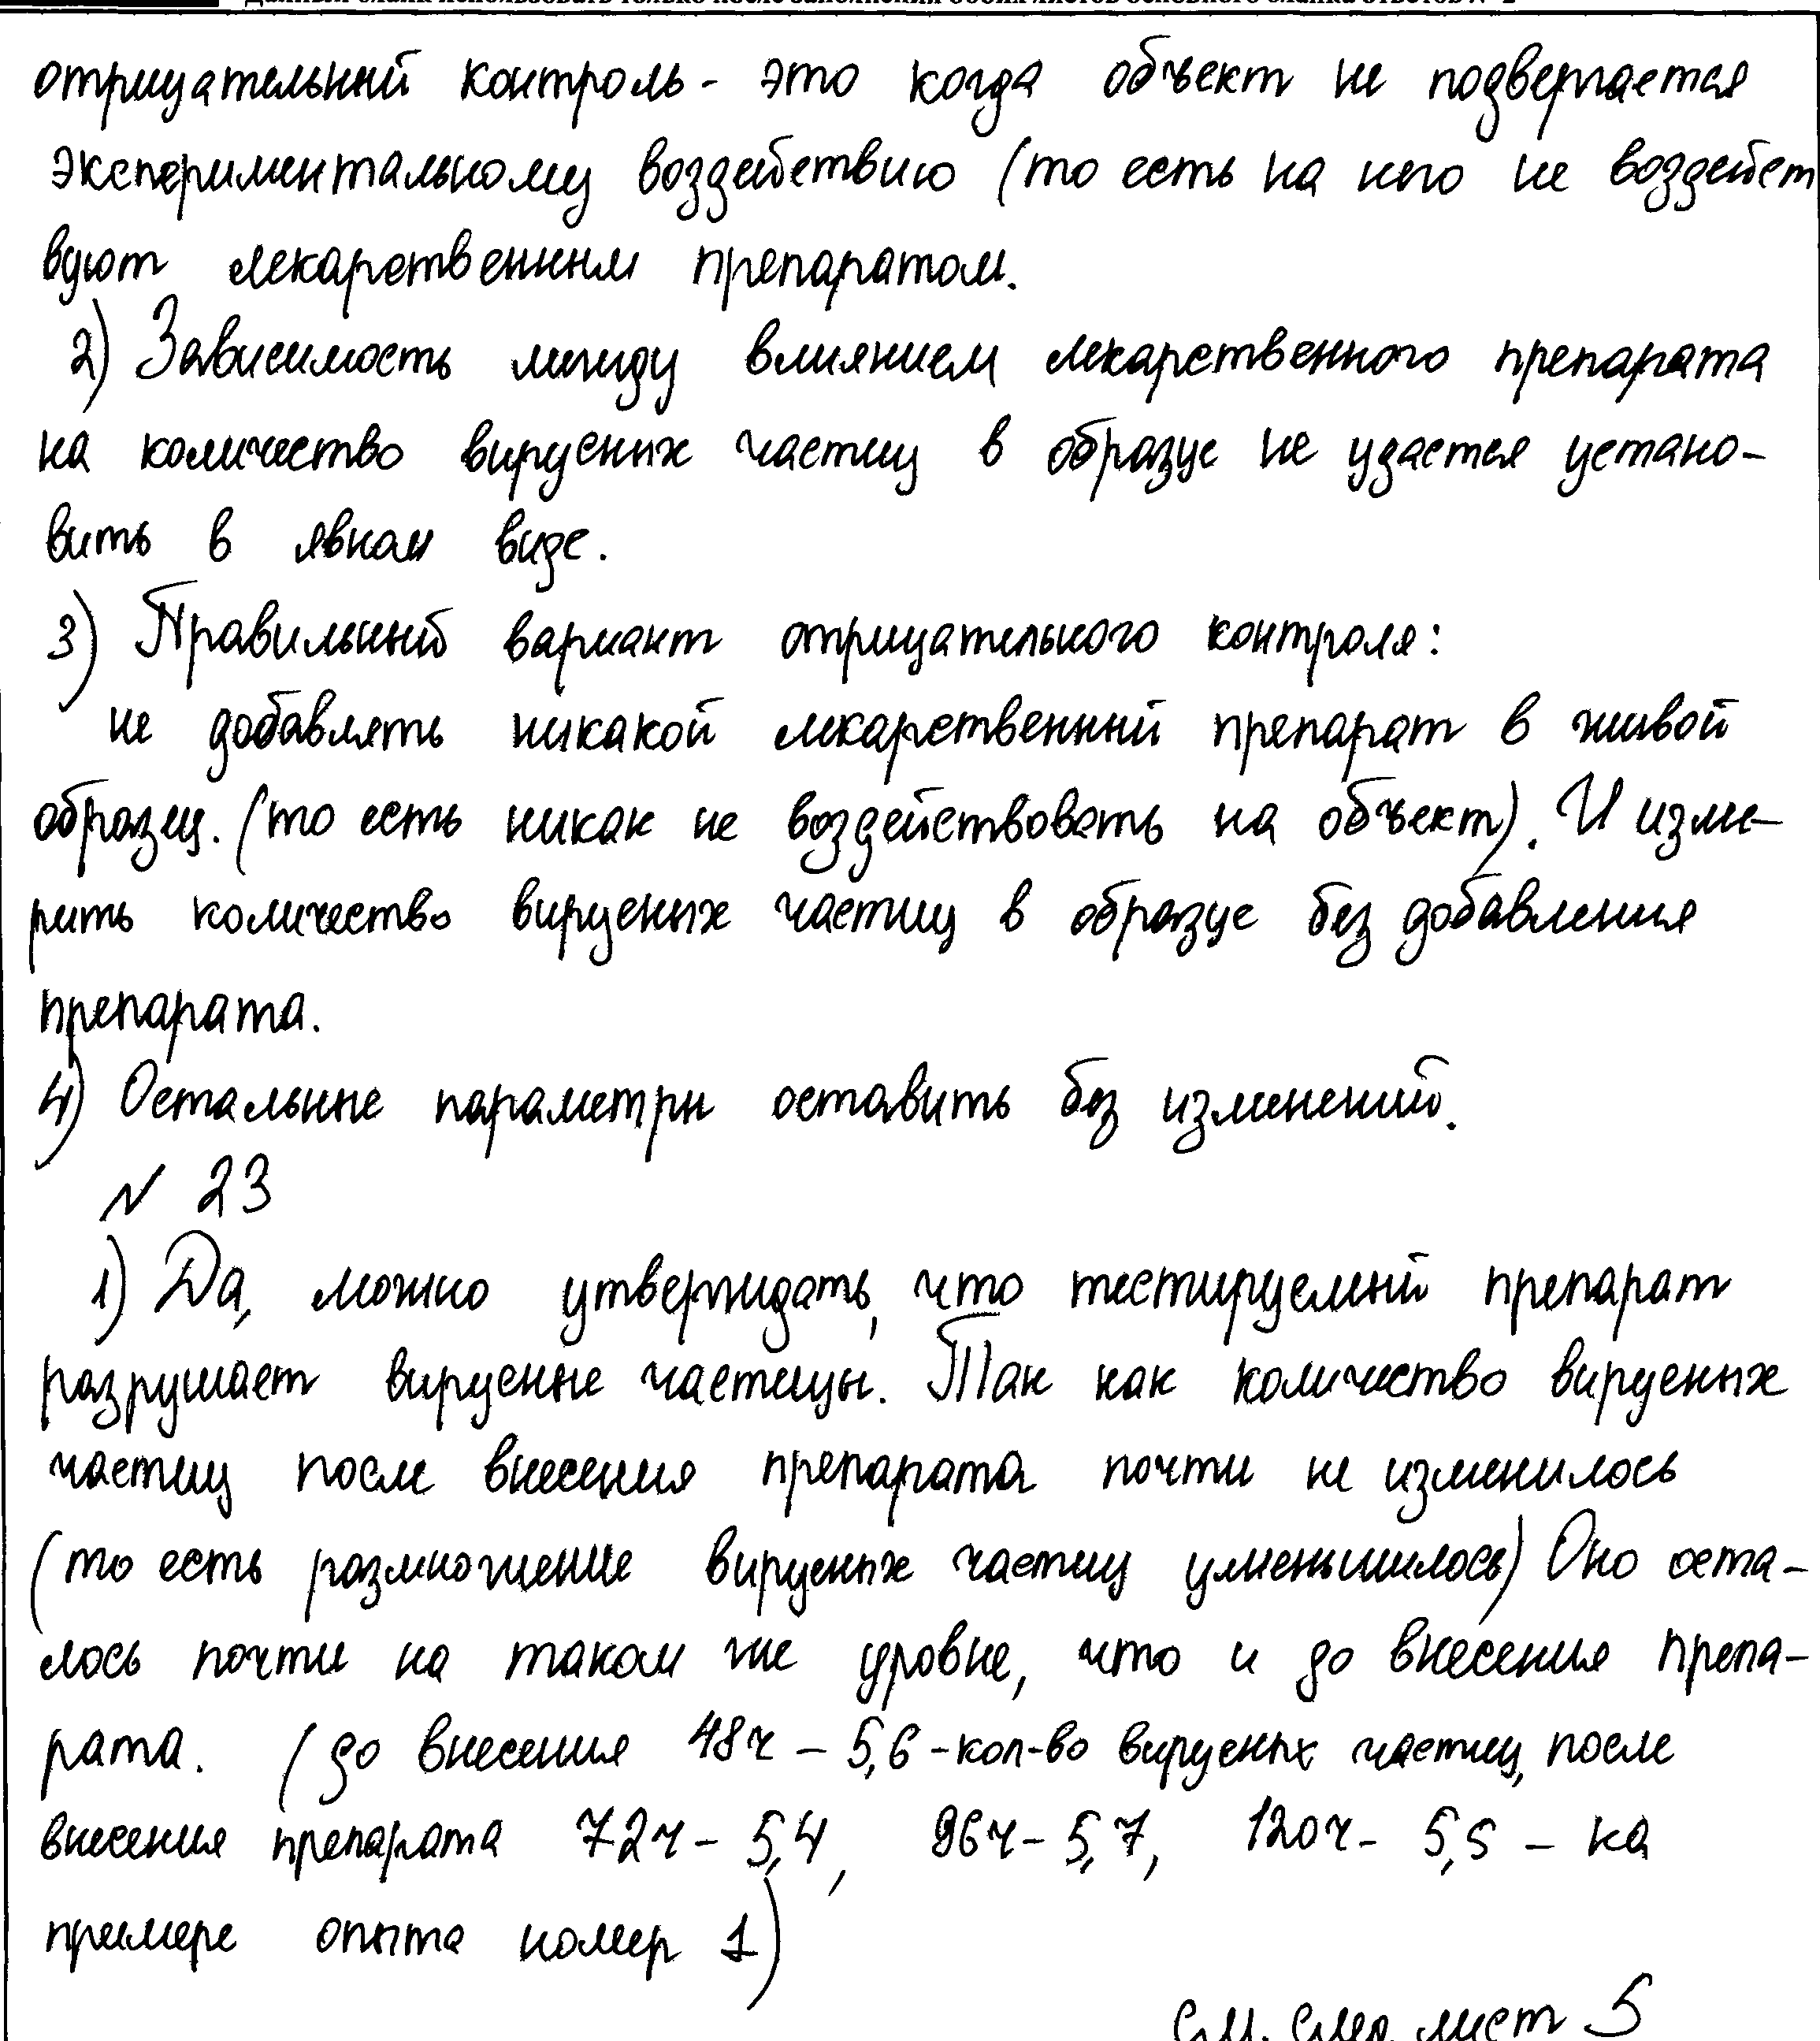 Данный бланк использовать только после заполнения обоих листов основного бланка ответов № 2
отрицательный контроль - это когда объект не подвергается
экспериментальному воздействию (то есть на него не воздейст
вуют лекарственным препаратом.
2) Зависимость между влиянием лекарственного препарата
на количество вирусных частиц в образце не удастся устано-
вить в явном виде.
3) Правильный вариант отрицательного контроля:
не добавлять никакой лекарственный препарат в живой
образец. (то есть никак не воздействовать на объект). И изме-
рить количество вирусных частиц в образце без добавления
препарата.
4) Остальные параметры оставить без изменений.
N 23
1) Да, можно утверждать, что тестируемый препарат
разрушает вирусные частицы. Так как количество вирусных
частиц после внесения препарата почти не изменилось
(то есть размножение вирусных частиц уменьшилось) Оно оста-
лось почти на таком же уровне, что и до внесения препа-
рата. (до внесения 48ч - 5,6 - кол-во вирусных частиц, после
внесения препарата 72ч - 5,4, 96ч - 5,7, 120ч - 5,5 - на
примере опыта номер 1)
См. лист 5